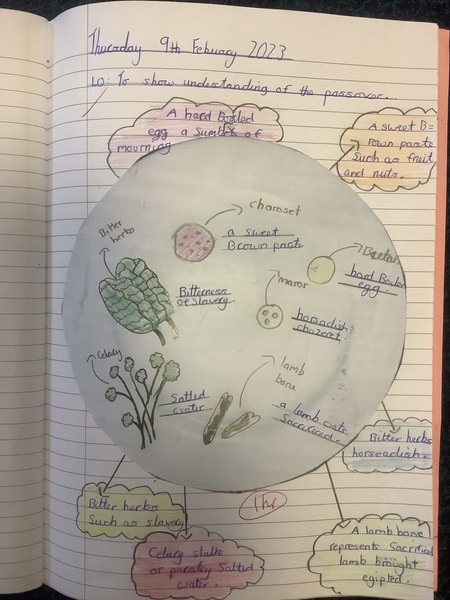 Thursday 9th Febuary 2023
LO: To show understanding of the passover.
A hard Boiled
egg a Sumbol of
mourning
A sweet B=
rown paste
Such as fruit
and nuts.
charoset
a sweet
Brown paste
Bitter
herbs
Beetah
hard Boiled
egg.
Bitterness
of slavery.
maror
horsadish
chazeret.
Celacy
Salted
water
lamb
bone
a lamb was
Sacrificed
Bitter herbs
horseadish=
Bitter herbs
Such as slavery
1hr
Celacy stalks
or parsley Salted
water.
A lamb bone
represents Sacrificed
lamb brought
egipted.